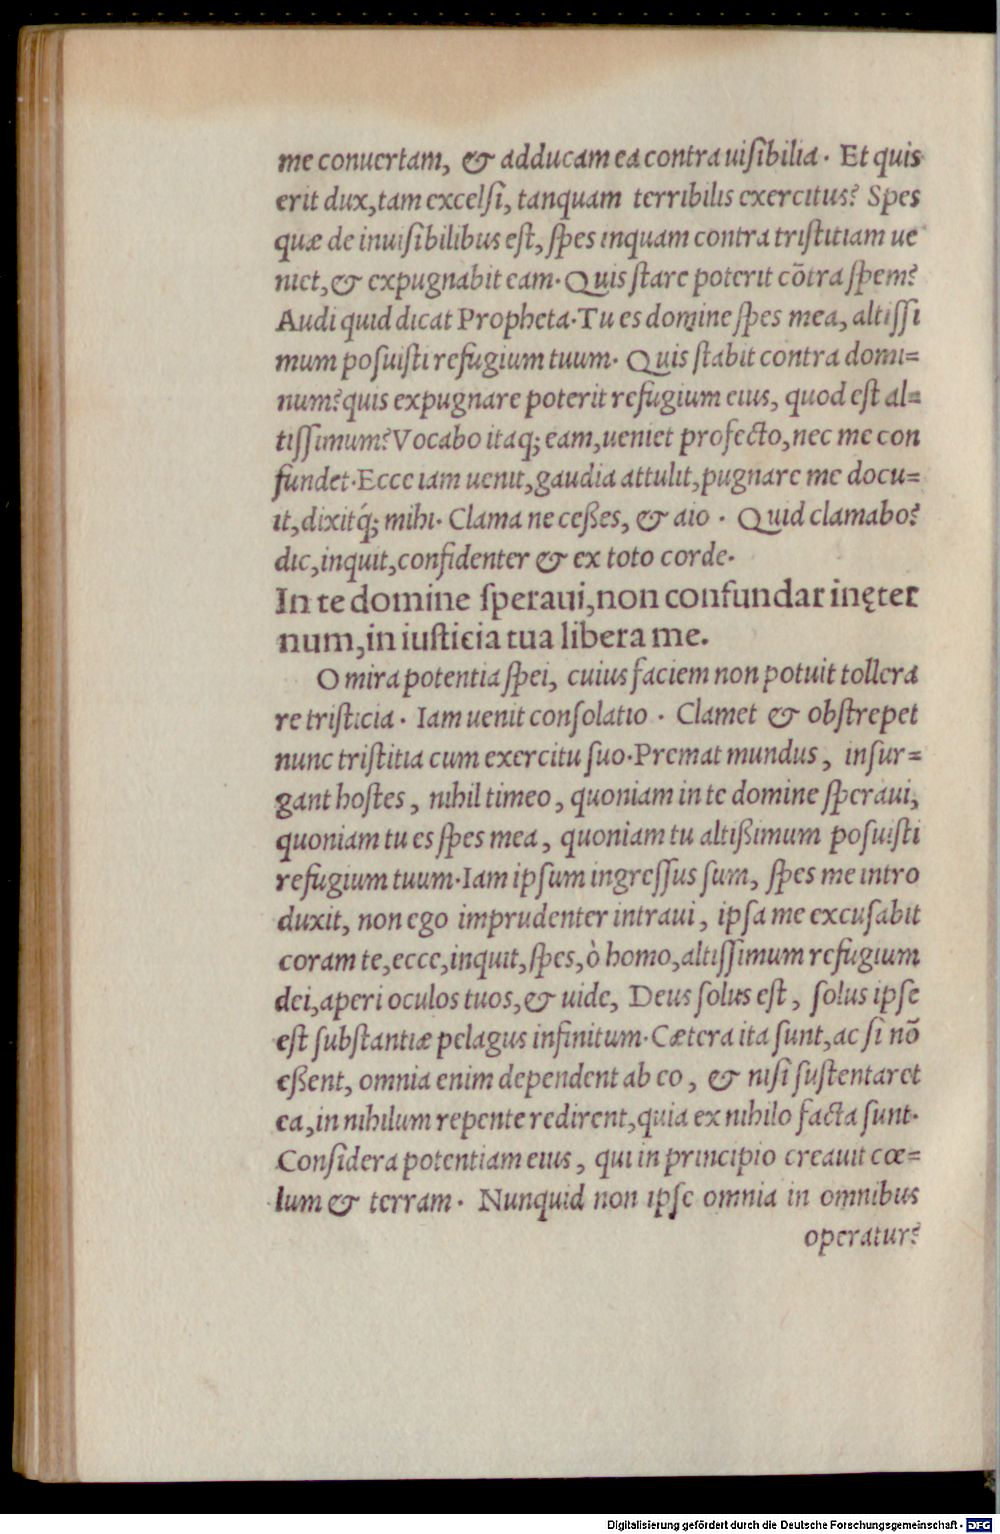 me conuertam, & adducam ea contra uiſibilia. Et quis
erit dux, tam excelſi, tanquam terribilis exercitus? Spes
quæ de inuiſibilibus eſt, ſpes inquam contra triſtitiam ue
niet, & expugnabit eam. Quis ſtare poterit cõtra ſpem?
Audi quid dicat Propheta. Tu es domine ſpes mea, altiſſi
mum poſuiſti refugium tuum. Quis ſtabit contra domi=
num? quis expugnare poterit refugium eius, quod eſt al=
tiſſimum? Vocabo itaq; eam, ueniet profecto, nec me con
fundet. Ecce iam uenit, gaudia attulit, pugnare me docu=
it, dixitq́; mihi. Clama ne ceßes, & aio . Quid clamabo?
dic, inquit, confidenter & ex toto corde.
In te domine ſperaui, non confundar in ęter
num, in iuſticia tua libera me.
O mira potentia ſpei, cuius faciem non potuit tollera
re triſticia . Iam uenit conſolatio . Clamet & obſtrepet
nunc triſtitia cum exercitu ſuo. Premat mundus, inſur=
gant hoſtes, nihil timeo, quoniam in te domine ſperaui,
quoniam tu es ſpes mea, quoniam tu altißimum poſuiſti
refugium tuum. Iam ipſum ingreſſus ſum, ſpes me intro
duxit, non ego imprudenter intraui, ipſa me excuſabit
coram te, ecce, inquit, ſpes, ò homo, altiſſimum refugium
dei, aperi oculos tuos, & uide, Deus ſolus eſt, ſolus ipſe
eſt ſubſtantiæ pelagus infinitum. Cætera ita ſunt, ac ſi nõ
eßent, omnia enim dependent ab eo, & niſi ſuſtentaret
ea, in nihilum repente redirent, quia ex nihilo facta ſunt.
Conſidera potentiam eius, qui in principio creauit cœ=
lum & terram . Nunquid non ipſe omnia in omnibus
operatur?
Digitalisierung gefördert durch die Deutsche Forschungsgemeinschaft - DFG